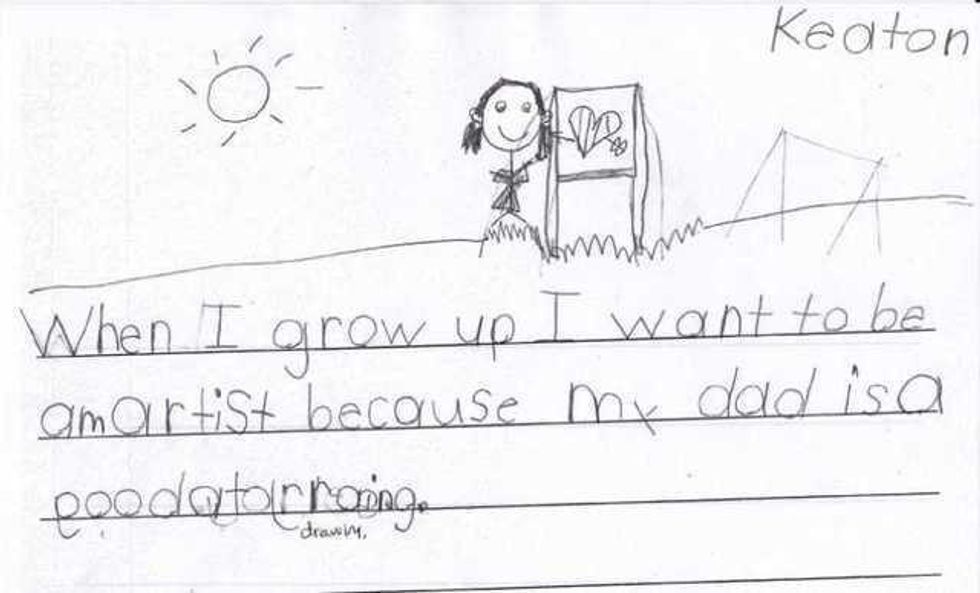 Keaton
When I grow up I want to be
am artist because my dad is a
good at
drawing.